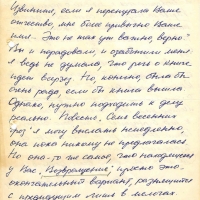 Извините, если я перепутала Ваше
отчество, мне более привычно Ваше
имя. Это не так уж важно, верно?
Вы и порадовали, и озаботили меня
я ведь не думала, что речь о книге
идет всерьез. Но, конечно, была бы
очень рада, если бы книга вышла
Однако, нужно подходить к делу
реально. Повесть, Семь весенних
гроз, я могу выслать немедленно,
она пока никому не предлагалась.
Но она-то же самое, что находится
у Вас, Возвращение, просто это
окончательный вариант, разнящийся
с предыдущим лишь в мелочах.